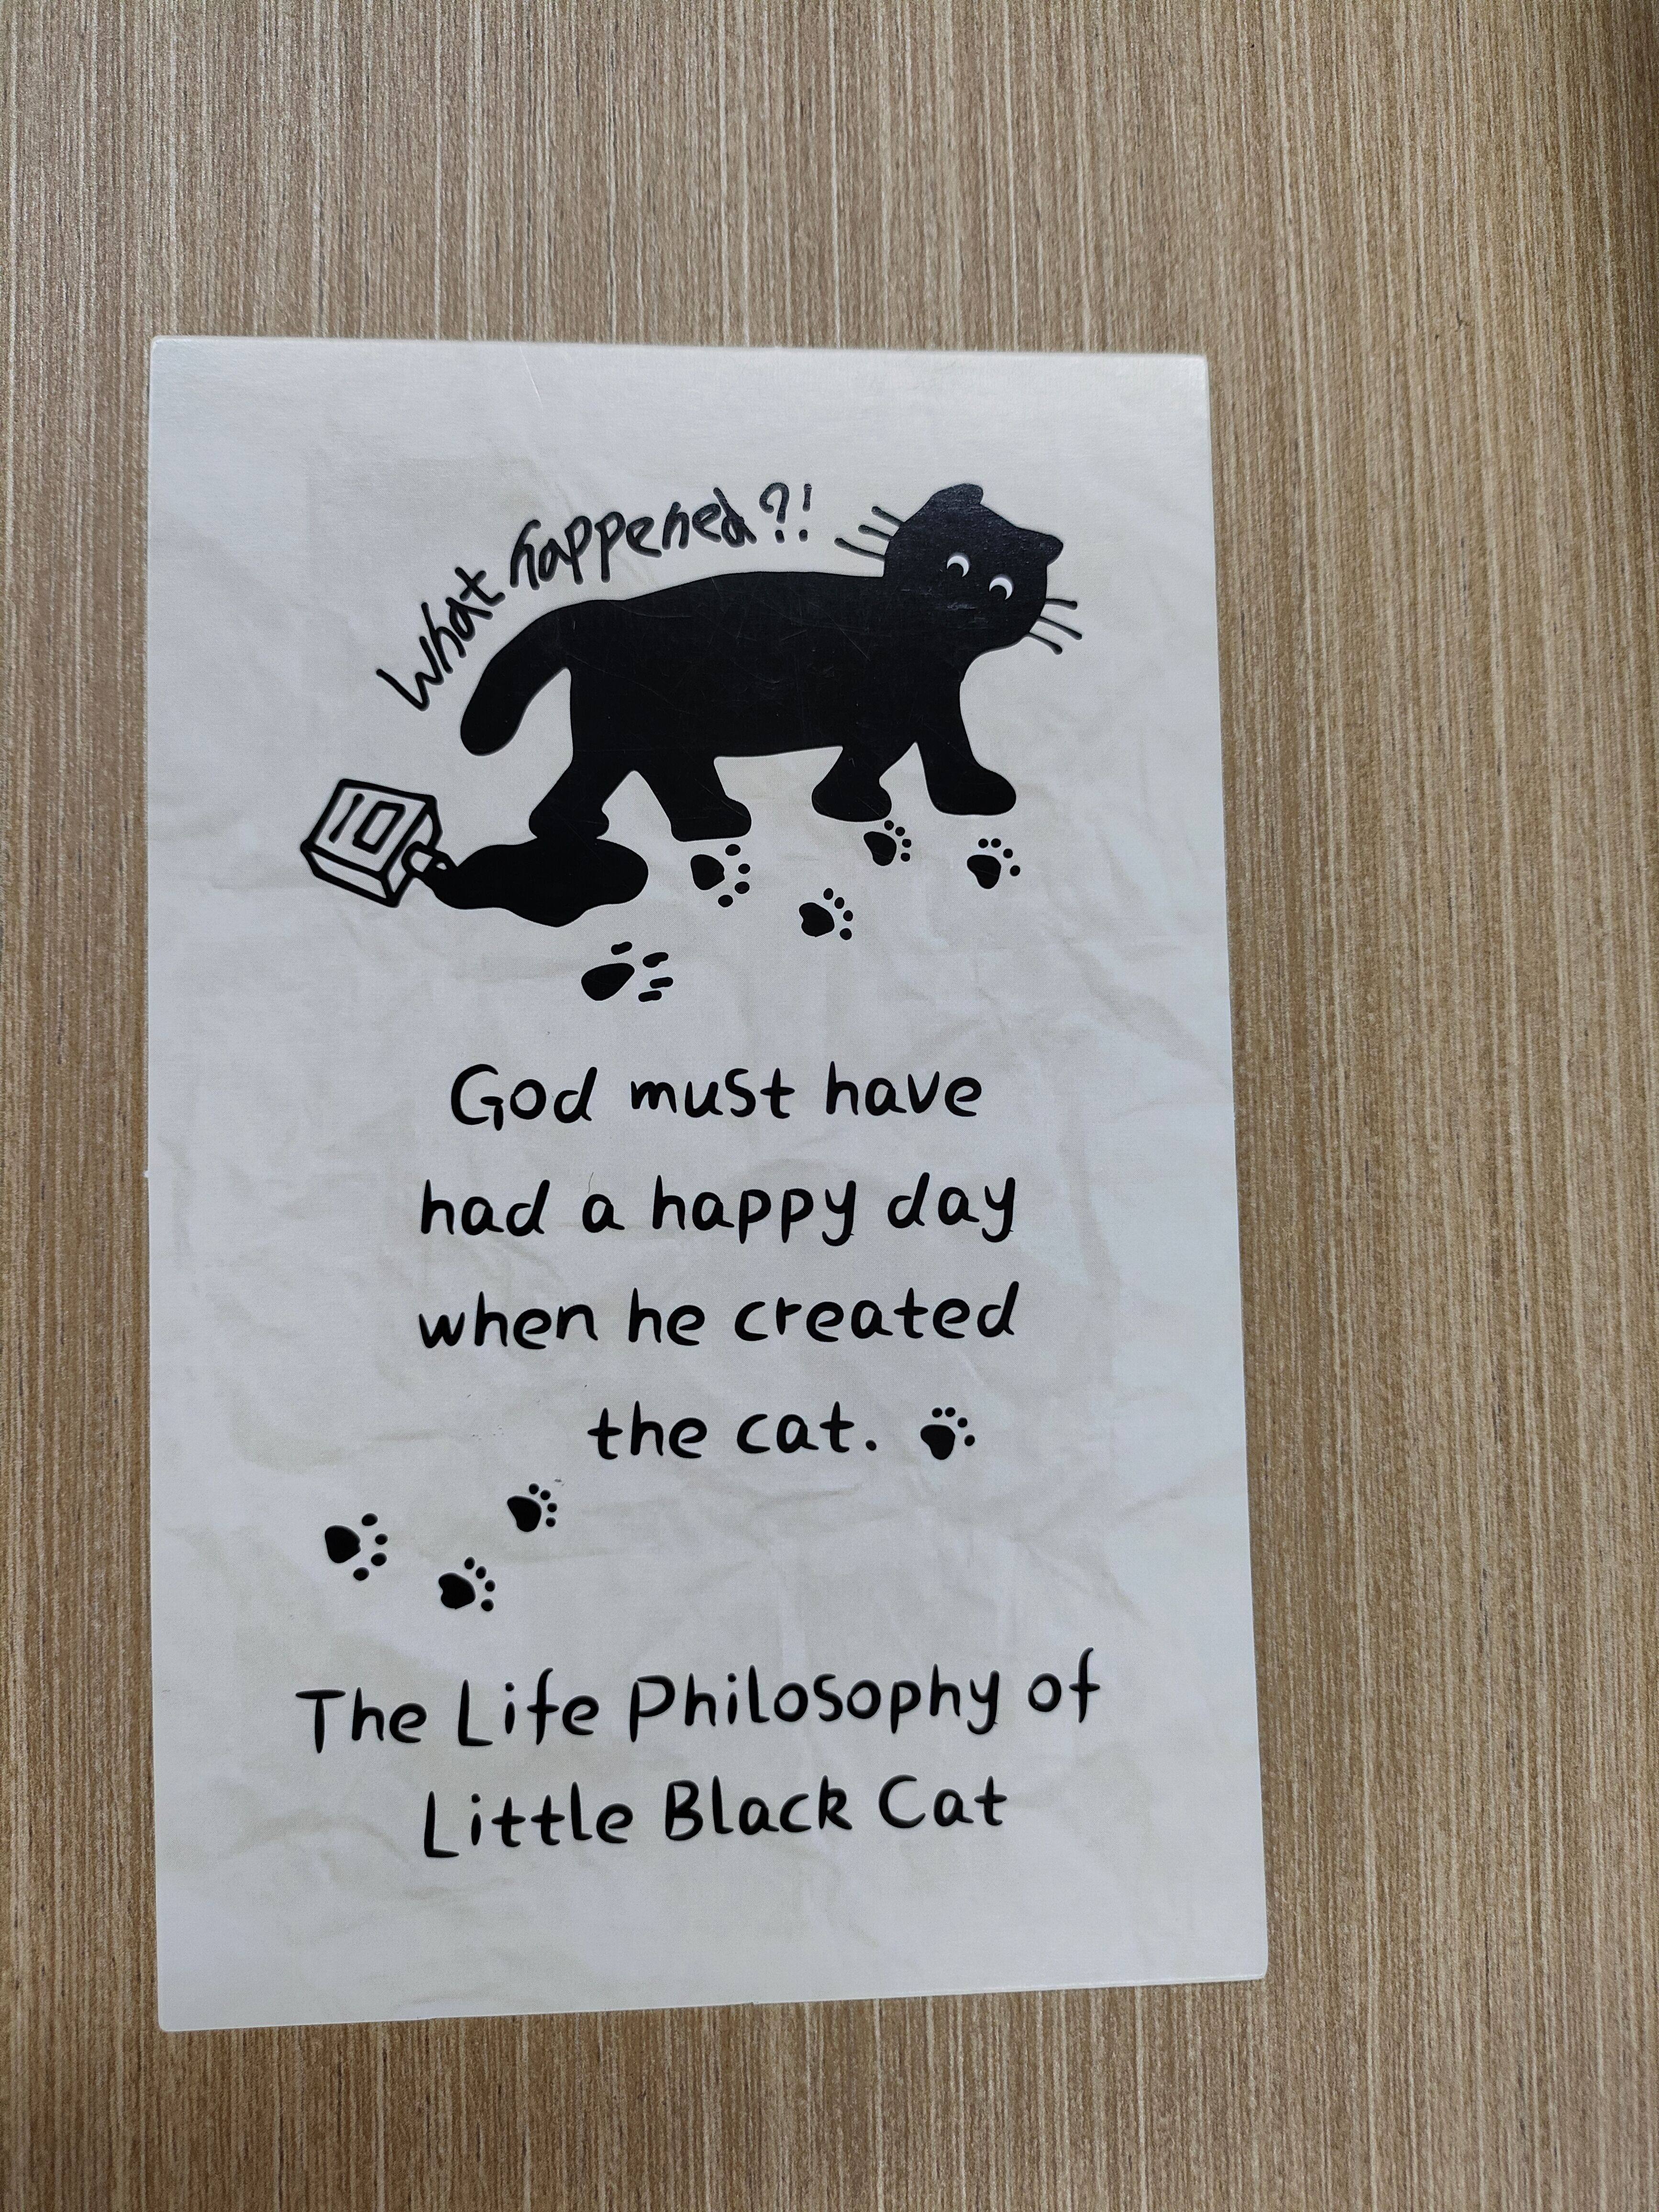 What happened?!
10
God must have
had a happy day
when he created
the cat.
The Life Philosophy of
Little Black Cat